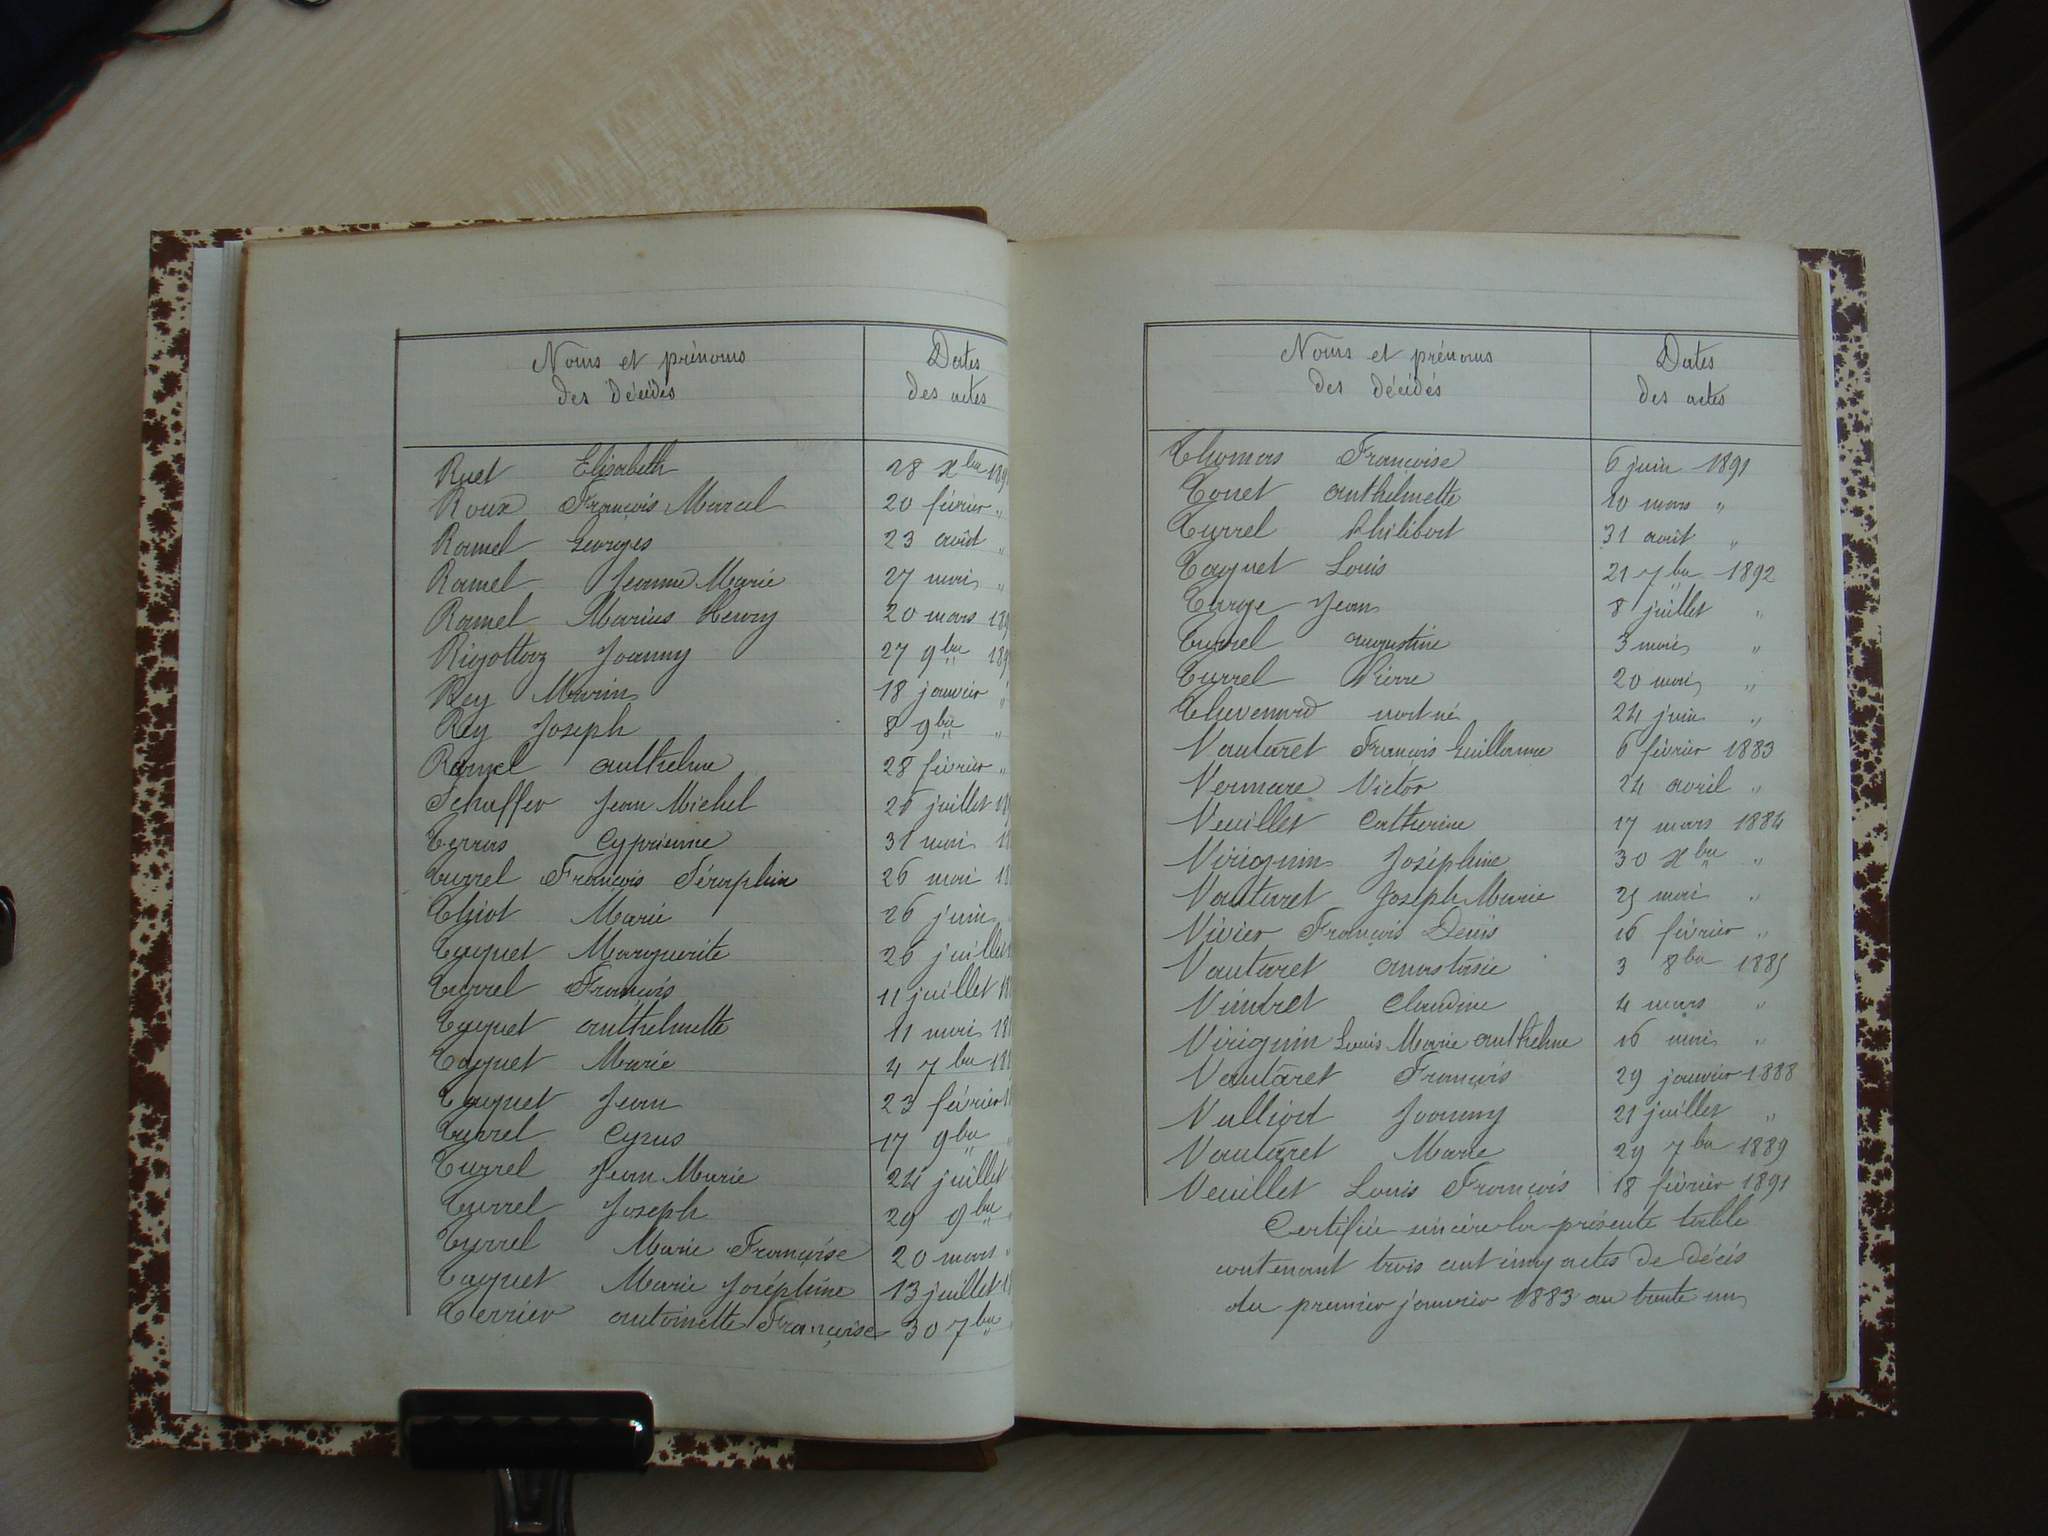 Noms et prénoms Dates
des décédés des actes
Ruet Elisabeth 28 Xbre 189
Roux François Marcel 20 février "
Ramel Georges 23 août "
Ramel Jeanne Marie 27 mai "
Ramel Marius Henry 20 mars 189
Rigottaz Joanny 27 9bre 189
Rey Marin 18 janvier "
Rey Joseph 8 9bre "
Ramel anthelme 28 février "
Schaffer Jean Michel 26 juillet 18
Terras Cyprienne 31 mai 1
Turrel François Séraphin 26 mai 18
Thiot Marie 26 juin
Taguet Marguerite 26 juillet
Turrel François 11 juillet 18
Taguet anthelmette 11 mai 18
Taguet Marie 4 7bre 188
Taguet Jean 23 février 1
Turrel Cyrus 17 9bre "
Turrel Jean Marie 24 juillet
Turrel Joseph 29 9bre "
Turrel Marie Françoise 20 mars "
Taguet Marie Joséphine 13 juillet 1
Terrier antoinette Françoise 30 7bre
Noms et prénoms Dates
des décédés des actes
Thomas Françoise 6 juin 1891
Touet anthelmette 10 mars "
Turrel Philibert 31 août "
Taguet Louis 21 7bre 1892
Turge Jean 8 juillet "
Turrel augustine 3 mai "
Turrel Pierre 20 mai "
Thevenard mort né 24 juin "
Vautaret François Guillaume 6 février 1883
Vermare Victor 24 avril "
Veuillet Catherine 17 mars 1884
Viriguin Joséphine 30 Xbre "
Vautaret Joseph Marie 25 mai "
Vivier François Denis 16 février "
Vautaret anastasie 3 8bre 1885
Vindret Claudine 4 mars "
Viriguin Louis Marie anthelme 16 mai "
Vautaret François 29 janvier 1888
Vulliod Joanny 21 juillet "
Vautaret Marie 29 7bre 1889
Veuillet Louis François 18 février 1891
Certifiée sincère la présente table
contenant trois cent cinq actes de décès
du premier janvier 1883 au trente un